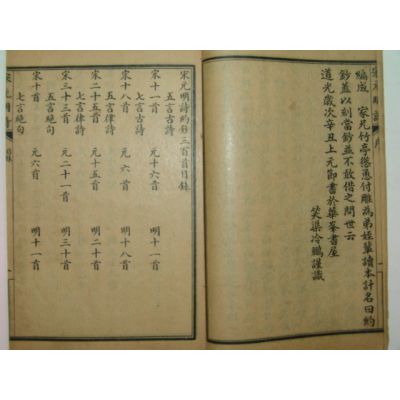 編成 家兄竹亭慫恿付雕為弟姪輩讀本計名曰約
鈔蓋以刻當鈔並不敢僭之問世云
道光歲次辛丑上元節書於華峯書屋
笑渠冷鵬謹識
宋元明詩約鈔三百首目錄
五言古詩
宋十一首 元一首 明十一首
七言古詩
宋十八首 元六首 明十八首
五言律詩
宋二十五首 元十五首 明二十首
七言律詩
宋三十三首 元二十一首 明三十首
五言絕句
宋十首 元六首 明十一首
七言絕句
宋元明詩